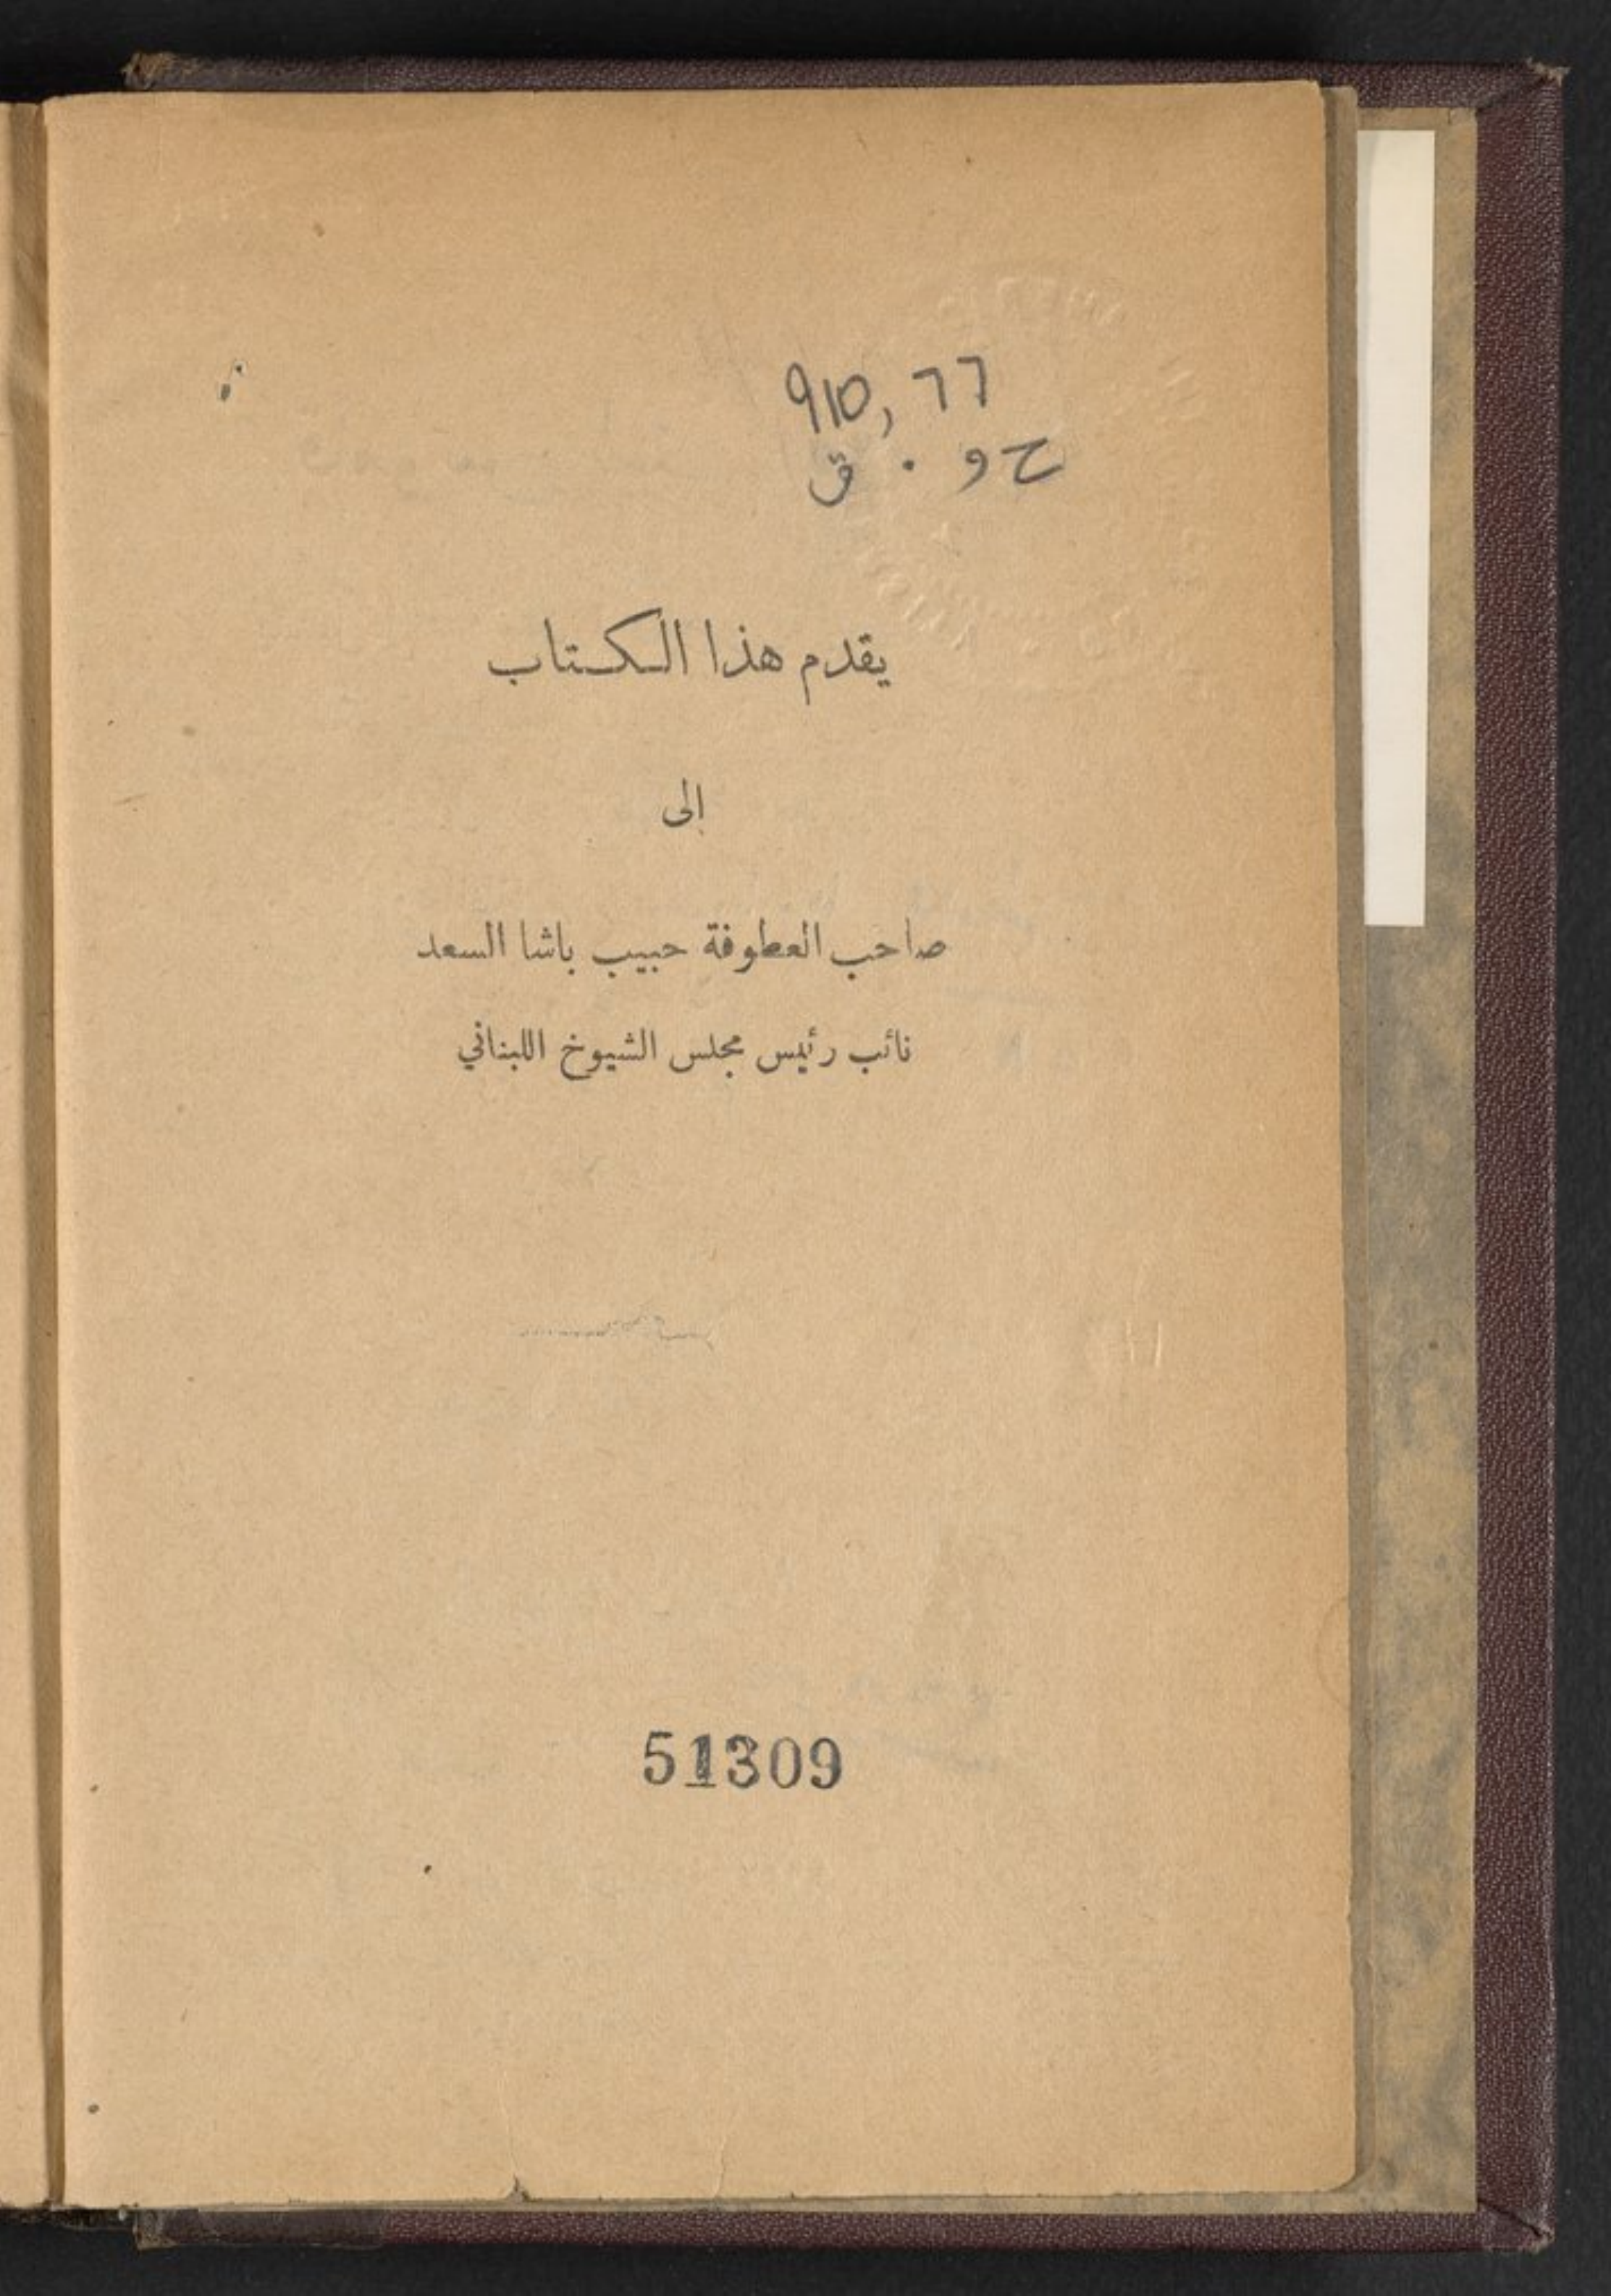 910,77
ح و . ق
يقدم هذا الكتاب
الى
صاحب العطوفة حبيب باشا السعد
نائب رئيس مجلس الشيوخ اللبناني
51309